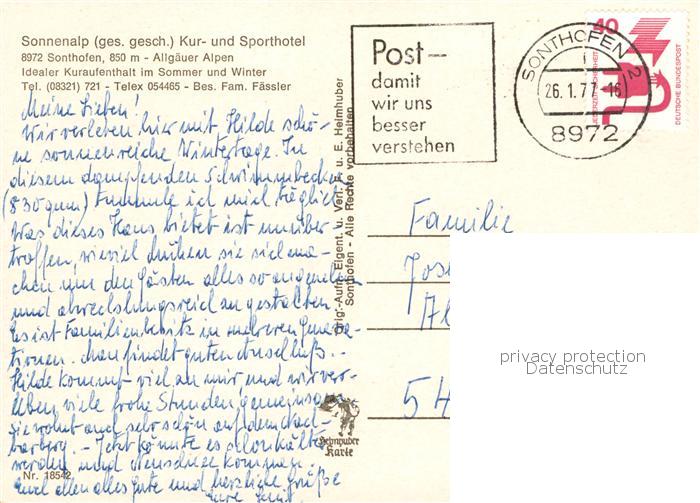 Sonnenalp (ges. gesch.) Kur- und Sporthotel
8972 Sonthofen, 850 m - Allgäuer Alpen
Idealer Kuraufenthalt im Sommer und Winter
Tel. (08321) 721 - Telex 054465 - Bes. Fam. Fässler
Meine Lieben!
Wir verleben hier mit Hilde schö-
ne sonnenreiche Wintertage. In
diesem dampfenden Schwimmbecken
(830 qm) tummle ich mich täglich
Was dieses Haus bietet ist unüber-
troffen, wieviel Mühen sie sich ma-
chen um den Gästen alles so angenehm
und abwechslungsreich zu gestalten.
Es ist Familienbesitz in mehreren Genera-
tionen. Man findet guten Anschluß. -
Hilde kommt viel zu mir und wir ver-
leben viele frohe Stunden gemeinsam
sie wohnt auch sehr schön auf dem
- Jetzt könnte es schon kälter
werden und Menschen kommen.
Euch allen alles Gute und herzliche Grüße
Eure
Nr. 18542
Orig.-Aufn. Eigent. u. Verl. F. u. E. Heimhuber
Sonthofen - Alle Rechte vorbehalten
Schnauder
Karte
Post-
damit
wir uns
besser
verstehen
SONTHOFEN 2
26.1.77-16
8972
40
JEDERZEIT SICHERHEIT
DEUTSCHE BUNDESPOST
Familie
Jos
54
privacy protection
Datenschutz